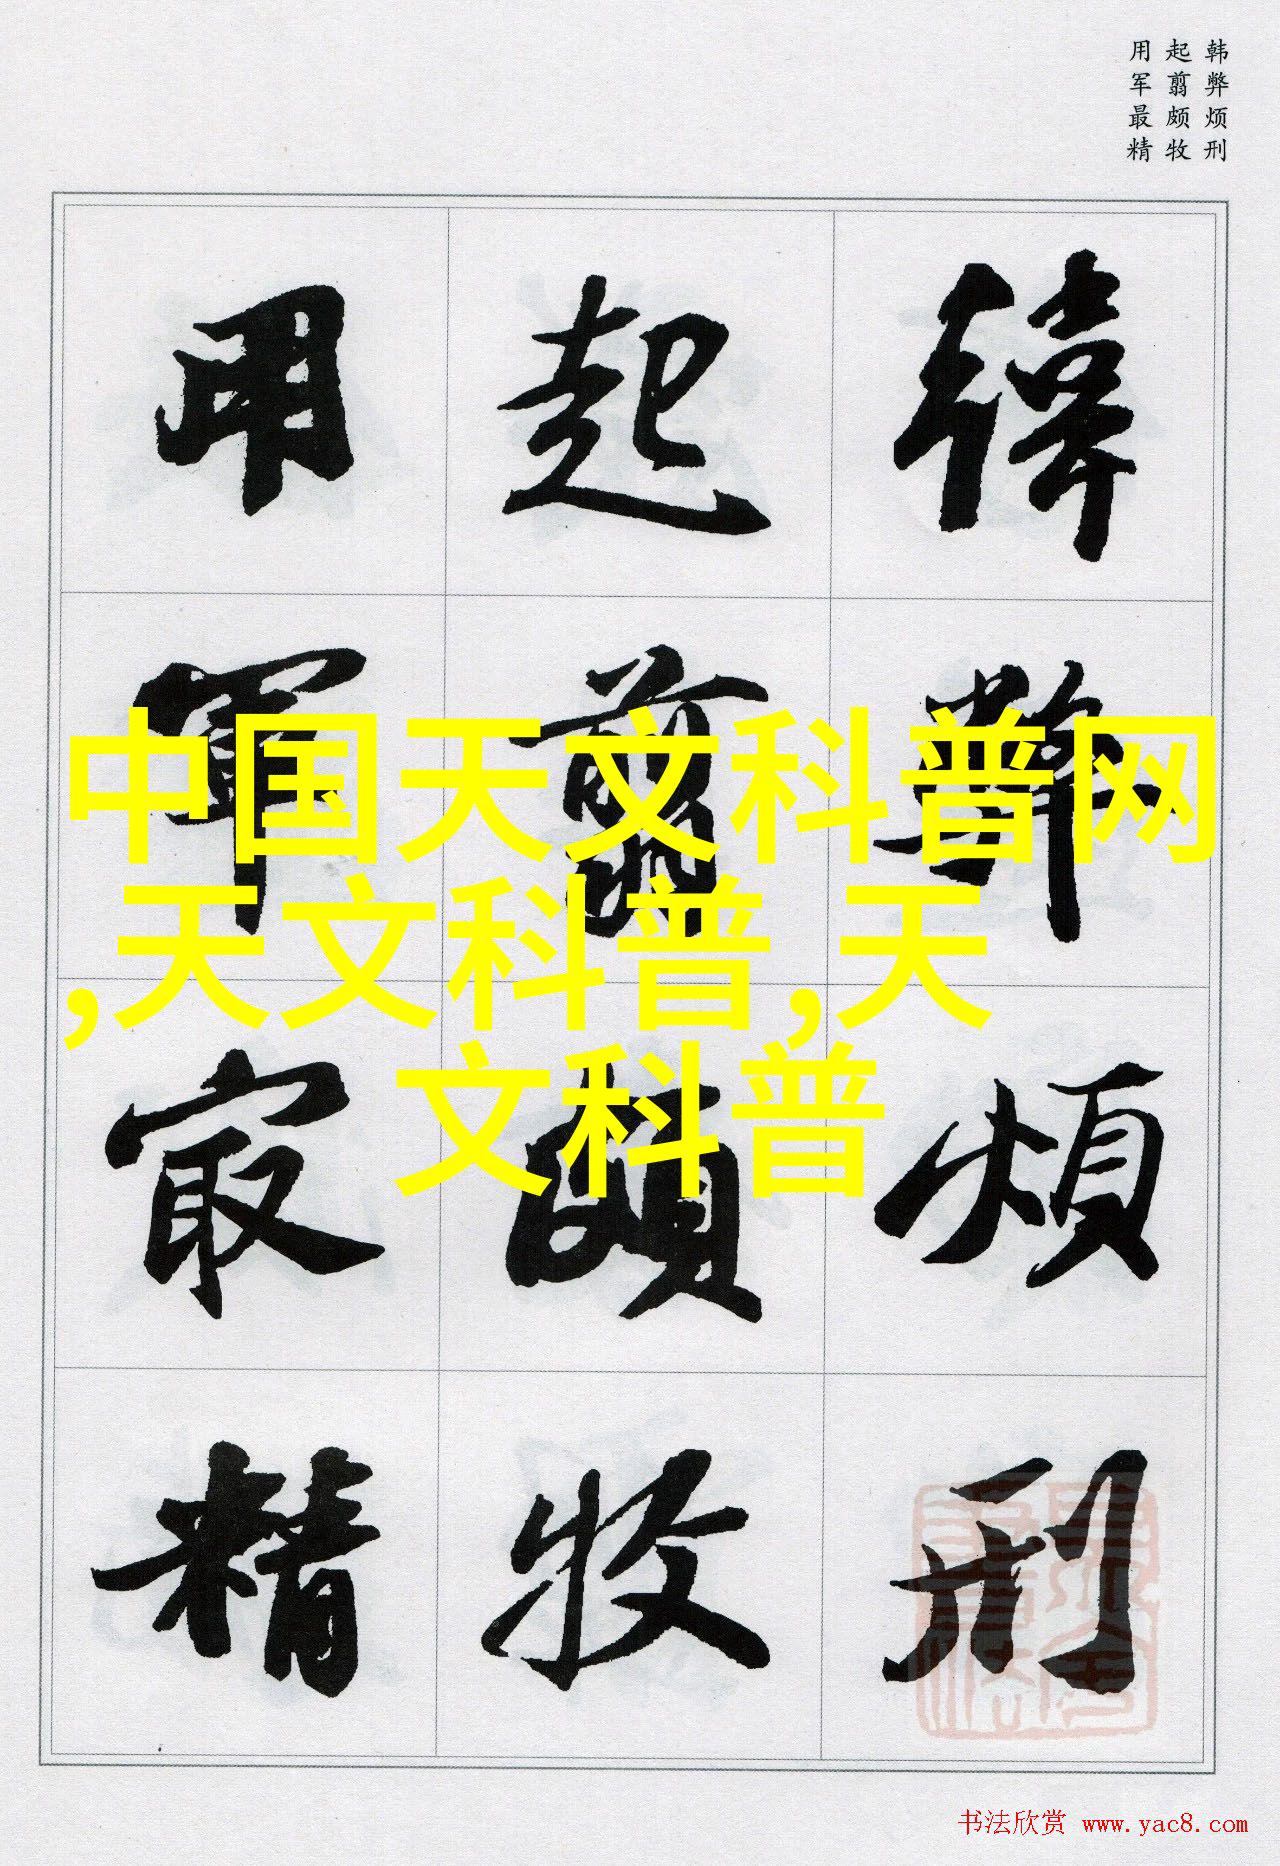 韩弊烦刑
起翦颇牧
用军最精
韩弊烦刑
起翦颇牧
用军最精
中国天文科普网
,天文科普,天
文科普
书法欣赏 www.yac8.com